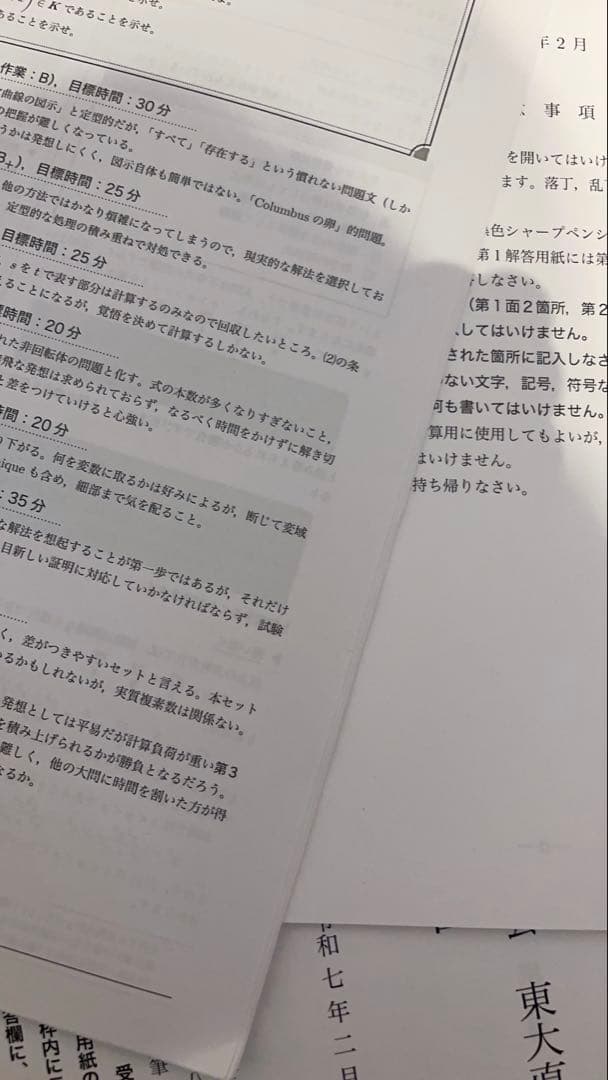 ∈ K であることを示せ。
あることを示せ。
作業：B)，目標時間：30 分
曲線の図示」と定型的だが，「すべて」「存在する」という慣れない問題文（しか
の把握が難しくなっている。
うかは発想しにくく，図示自体も簡単ではない。「Columbus の卵」的問題。
B₊)，目標時間：25 分
他の方法ではかなり煩雑になってしまうので，現実的な解法を選択してお
定型的な処理の積み重ねで対処できる。
目標時間：25 分
s を t で表す部分は計算するのみなので回収したいところ。(2)の条
えることになるが，覚悟を決めて計算するしかない。
標時間：20 分
れた非回転体の問題と化す。式の本数が多くなりすぎないこと，
飛な発想は求められておらず，なるべく時間をかけずに解き切
と差をつけていけると心強い。
時間：20 分
り下がる。何を変数に取るかは好みによるが，断じて変域
ique も含め，細部まで気を配ること。
：35 分
な解法を想起することが第一歩ではあるが，それだけ
目新しい証明に対応していかなければならず，試験
く，差がつきやすいセットと言える。本セット
いるかもしれないが，実質複素数は関係ない。
発想としては平易だが計算負荷が重い第3
を積み上げられるかが勝負となるだろう。
難しく，他の大問に時間を割いた方が得
なるか。
年 2 月
事 項
を開いてはいけ
ます。落丁，乱丁
色シャープペンシ
第1解答用紙には第
しなさい。
（第1面2箇所，第2
してはいけません。
された箇所に記入しなさ
ない文字，記号，符号な
何も書いてはいけません。
算用に使用してもよいが，
はいけません。
持ち帰りなさい。
東大直
和七年二月
受
筆
用紙の
枠内に
答欄に、